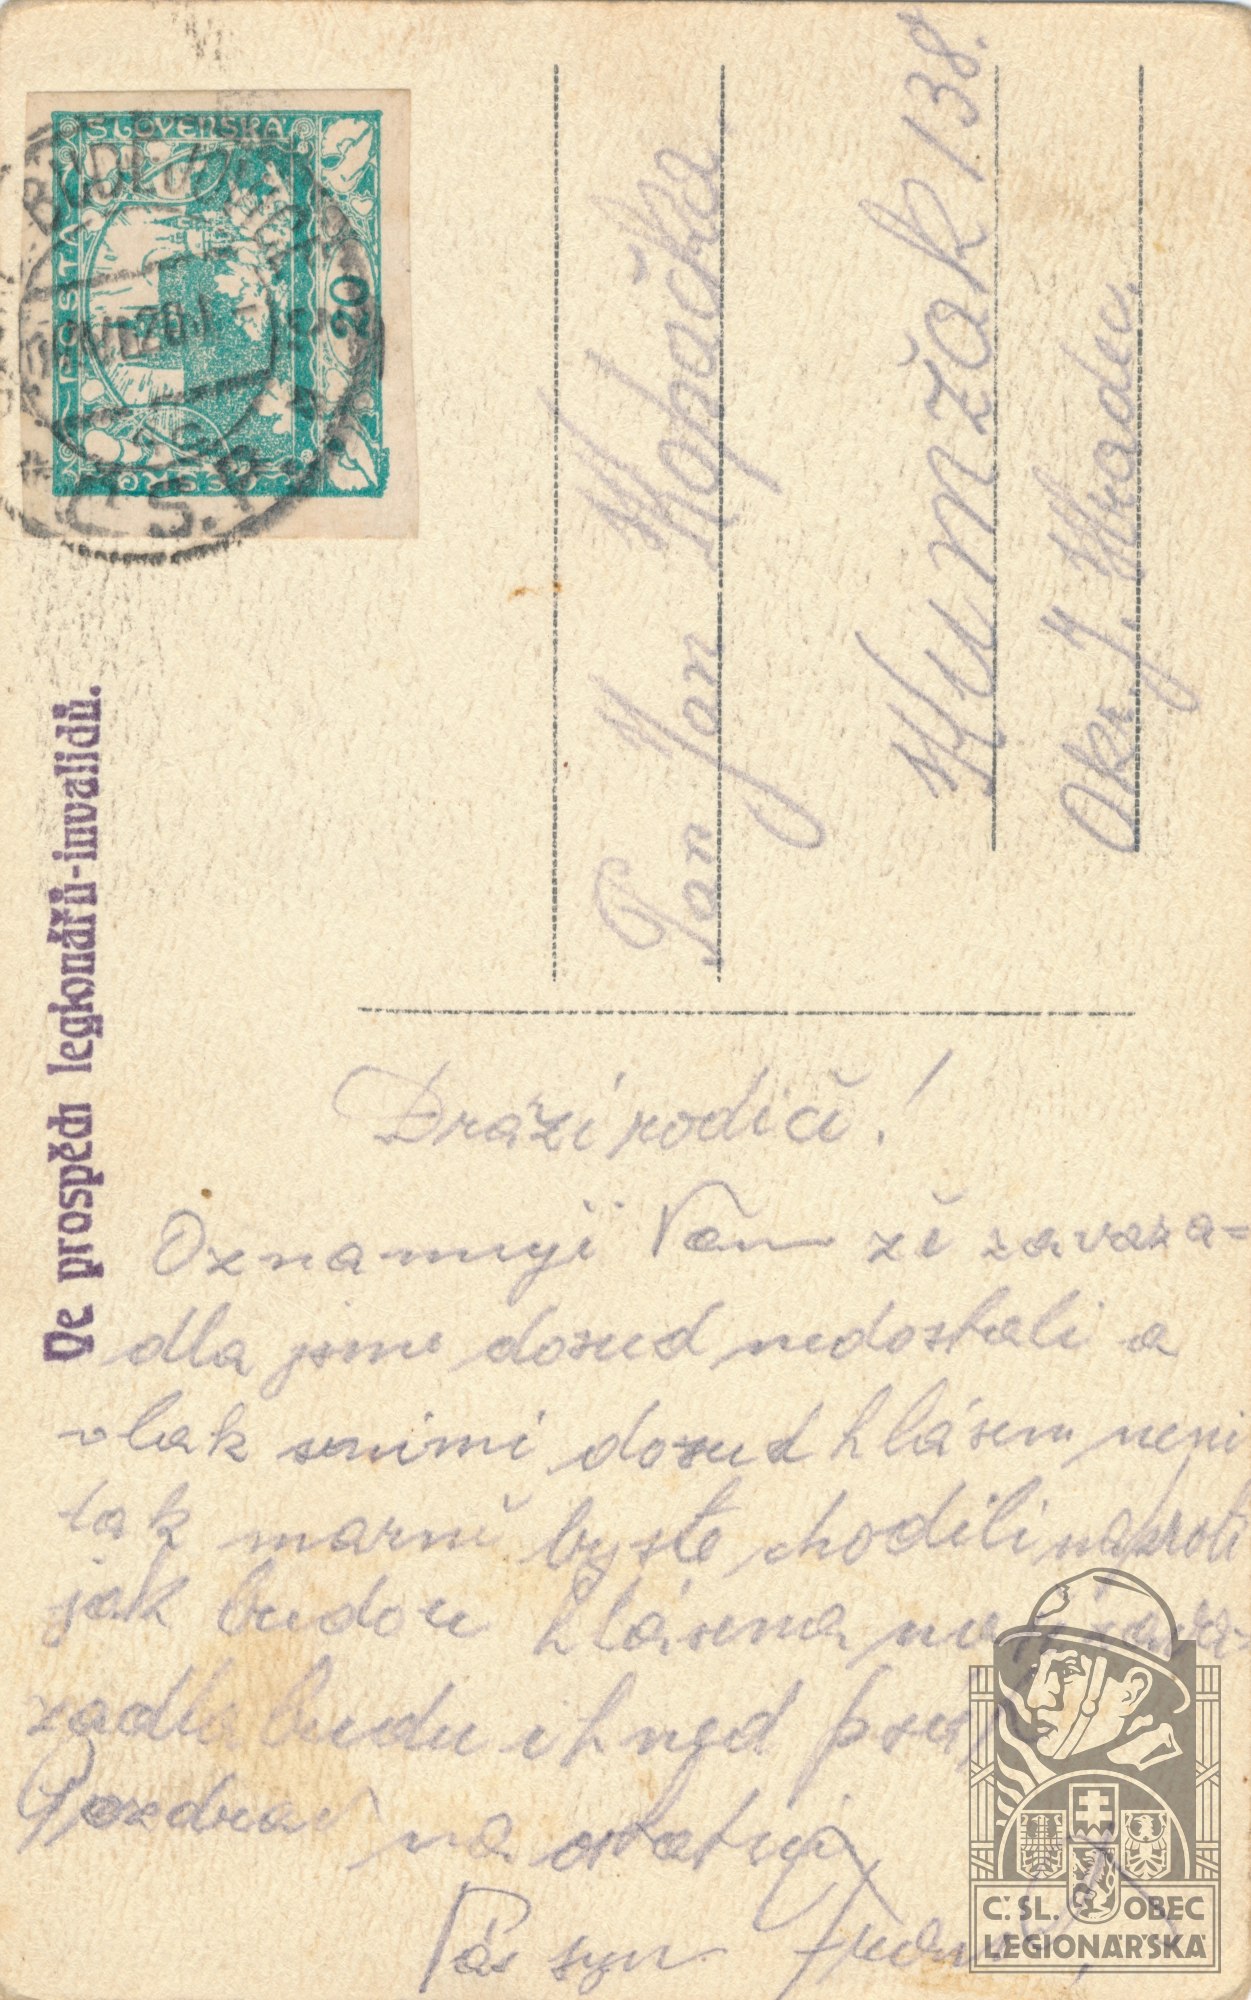 POŠTA
SLOVENSKÁ
20
Č.S.P.
Ve prospěch legionářů-invalidů.
Pan Jan Kopačka
Kunžak 138.
Okr. J. Hradec.
Drazí rodiče!
Oznamuji Vam že zavaza=
dla jsme dosud nedostali a
vlak snimi dosud hlásen neni
tak marně byste chodili naproti
jak budou hlásena
zadla budu ihned psat
Pozdrav na ostatní
Vás syn
Č.SL. OBEC
LEGIONÁŘSKÁ